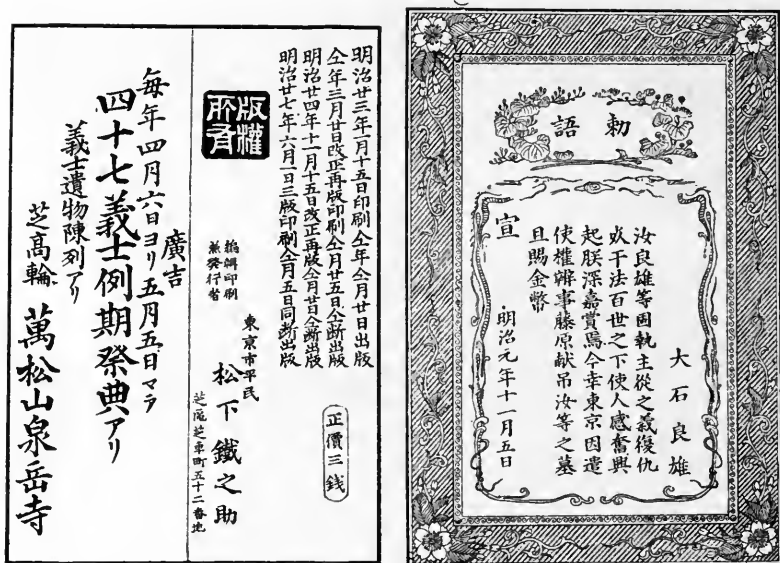 勅語
大石良雄
汝良雄等固執主從之義復仇
死于法百世之下使人感奮興
起朕深嘉賞焉今幸東京因遣
使權辨事藤原献吊汝等之墓
且賜金幣
宣
明治元年十一月五日
明治廿三年一月十五日印刷仝年仝月廿日出版
仝年三月廿日改正再版印刷仝月廿五日仝断出版
明治廿四年十一月十五日改正再版仝月廿日仝断出版
明治廿七年六月一日三版印刷仝月五日同断出版
正價三銭
版權所有
編輯印刷
兼発行者
東京市平民
松下鐵之助
芝區芝車町五十二番地
廣吉
每年四月六日ヨリ五月五日マデ
四十七義士例期祭典アリ
義士遺物陳列アリ
芝高輪
萬松山泉岳寺